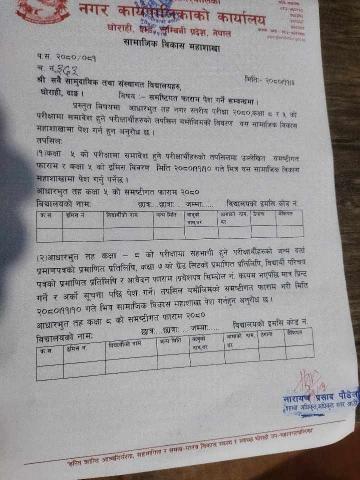 नगर कार्यपालिकाको कार्यालय
घोराही, दाङ, लुम्बिनी प्रदेश, नेपाल
सामाजिक विकास महाशाखा
प.स. २०८०/०८१
च.नं.
मिति:-
श्री सबै सामुदायिक तथा संस्थागत विद्यालयहरु,
घोराही, दाङ ।
विषय :- समष्टिगत फाराम पेश गर्ने सम्बन्धमा।
प्रस्तुत विषयमा आधारभुत तह नगर स्तरीय परीक्षा २०८०,कक्षा ८ र ५ को
परीक्षामा समावेश हुने परीक्षार्थीहरुको तपसिल बमोजिमको विवरण यस सामाजिक विकास
महाशाखामा पेश गर्न हुन अनुरोध छ ।
तपसिल:
(१)कक्षा ५ को परीक्षामा समावेश हुने परीक्षार्थीहरुको तपसिलमा उल्लेखित समष्टीगत
फाराम र कक्षा ५ को इमिस विवरण मिति गते भित्र यस सामाजिक विकास
महाशाखामा पेश गर्नु पर्नेछ ।
आधारभुत तह कक्षा ५ को समष्टीगत फाराम २०८०
विद्यालयको नाम: छात्रा:.. छात्र:.. जम्मा:.. विद्यालयको इमसि कोड नं:
क्र.स इमिस नं. विद्यार्थीको नाम जन्म मिति बाबुको नाम,थर आमाको नाम, थर ठेगाना कैफियत
(२)आधारभुत तह कक्षा - ८ को परीक्षामा सहभागी हुने परीक्षार्थीहरुको जन्म दर्ता
प्रमाणपत्रको प्रमाणित प्रतिलिपि, कक्षा ७ को ग्रेड सिटको प्रमाणित प्रतिलिपि, विद्यार्थी परिचय
पत्रको प्रमाणित प्रतिलिपि र आवेदन फाराम
गर्ने र अर्को सूचना पछि पेश गर्ने। तपसिल बमोजिमको समष्टीगत फाराम भरी मिति
गते भित्र सामाजिक विकास महाशाखामा पेश गर्नहुन अनुरोध छ।
आधारभुत तह कक्षा ८ को समष्टीगत फाराम २०८०
विद्यालयको नाम: छात्रा:.. छात्र:.. जम्मा:.. विद्यालयको इमसि कोड नं.
क्र.स इमिस नं. विद्यार्थीको नाम जन्म मिति बाबुको नाम,थर आमाको नाम, थर ठेगाना कैफियत
नारायण प्रसाद पौडेल